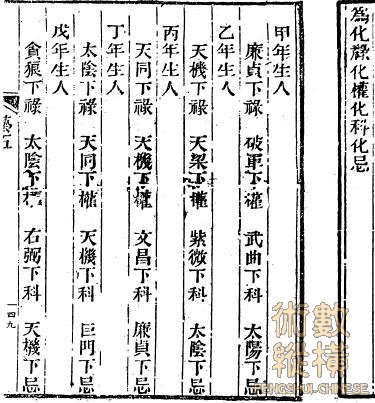 為化祿化權化科化忌
甲年生人
廉貞下祿 破軍下權 武曲下科 太陽下忌
乙年生人
天機下祿 天梁下權 紫微下科 太陰下忌
丙年生人
天同下祿 天機下權 文昌下科 廉貞下忌
丁年生人
太陰下祿 天同下權 天機下科 巨門下忌
戊年生人
貪狼下祿 太陰下權 右弼下科 天機下忌
一四九
術數縱橫
FENGSHUI-CHINESE